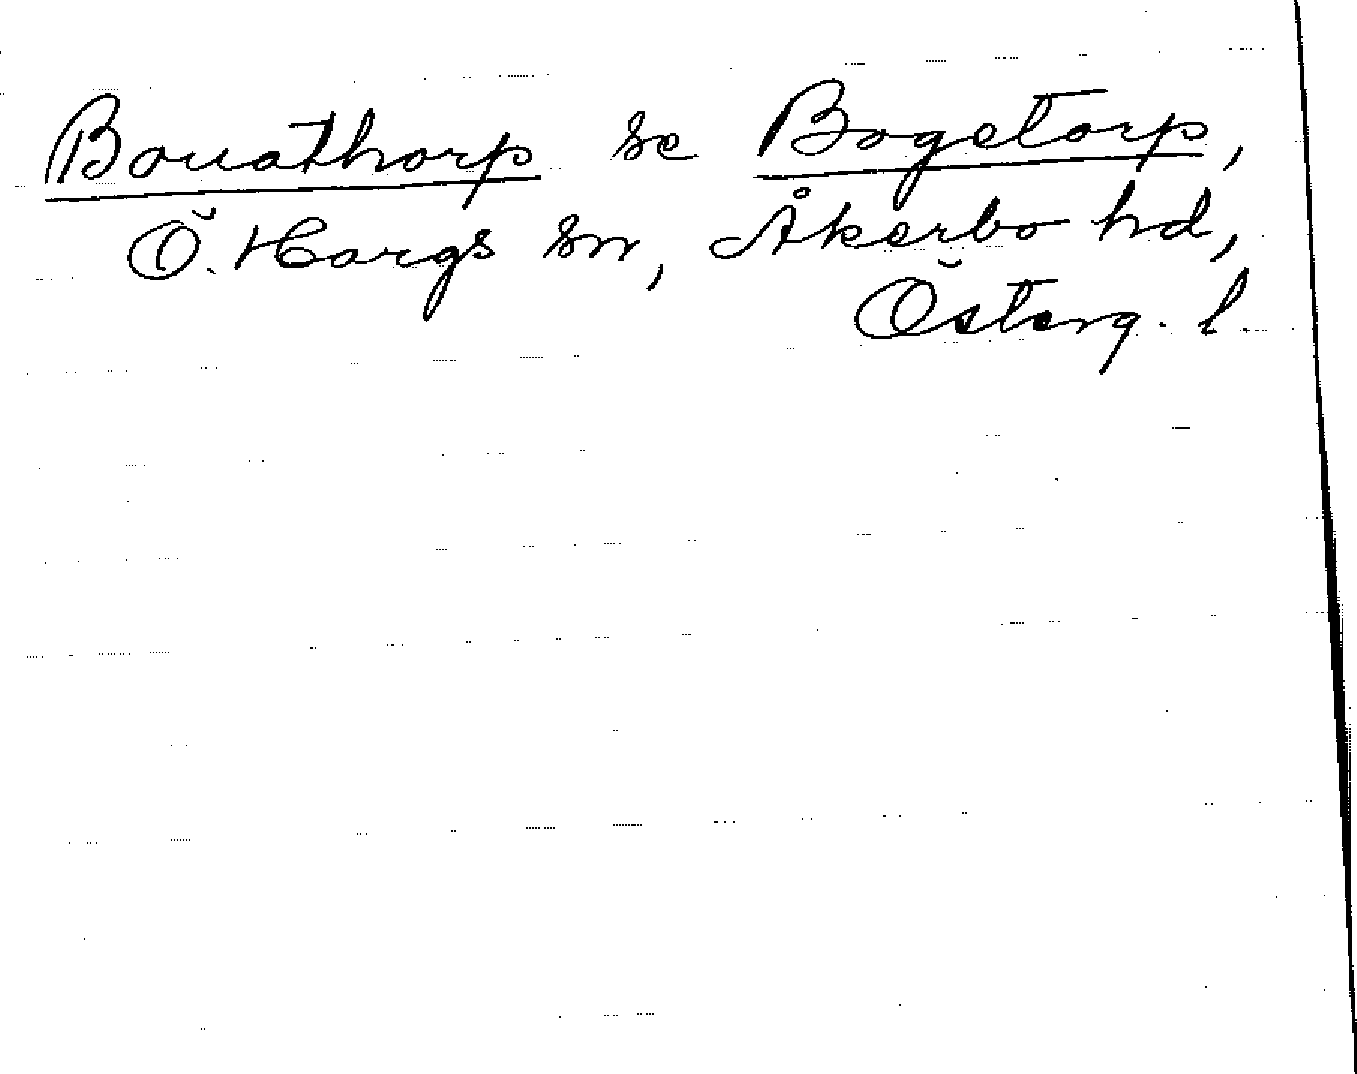 Bouathorp se Bogetorp,
Ö. Hargs sn, Åkerbo hd,
Österg. l.